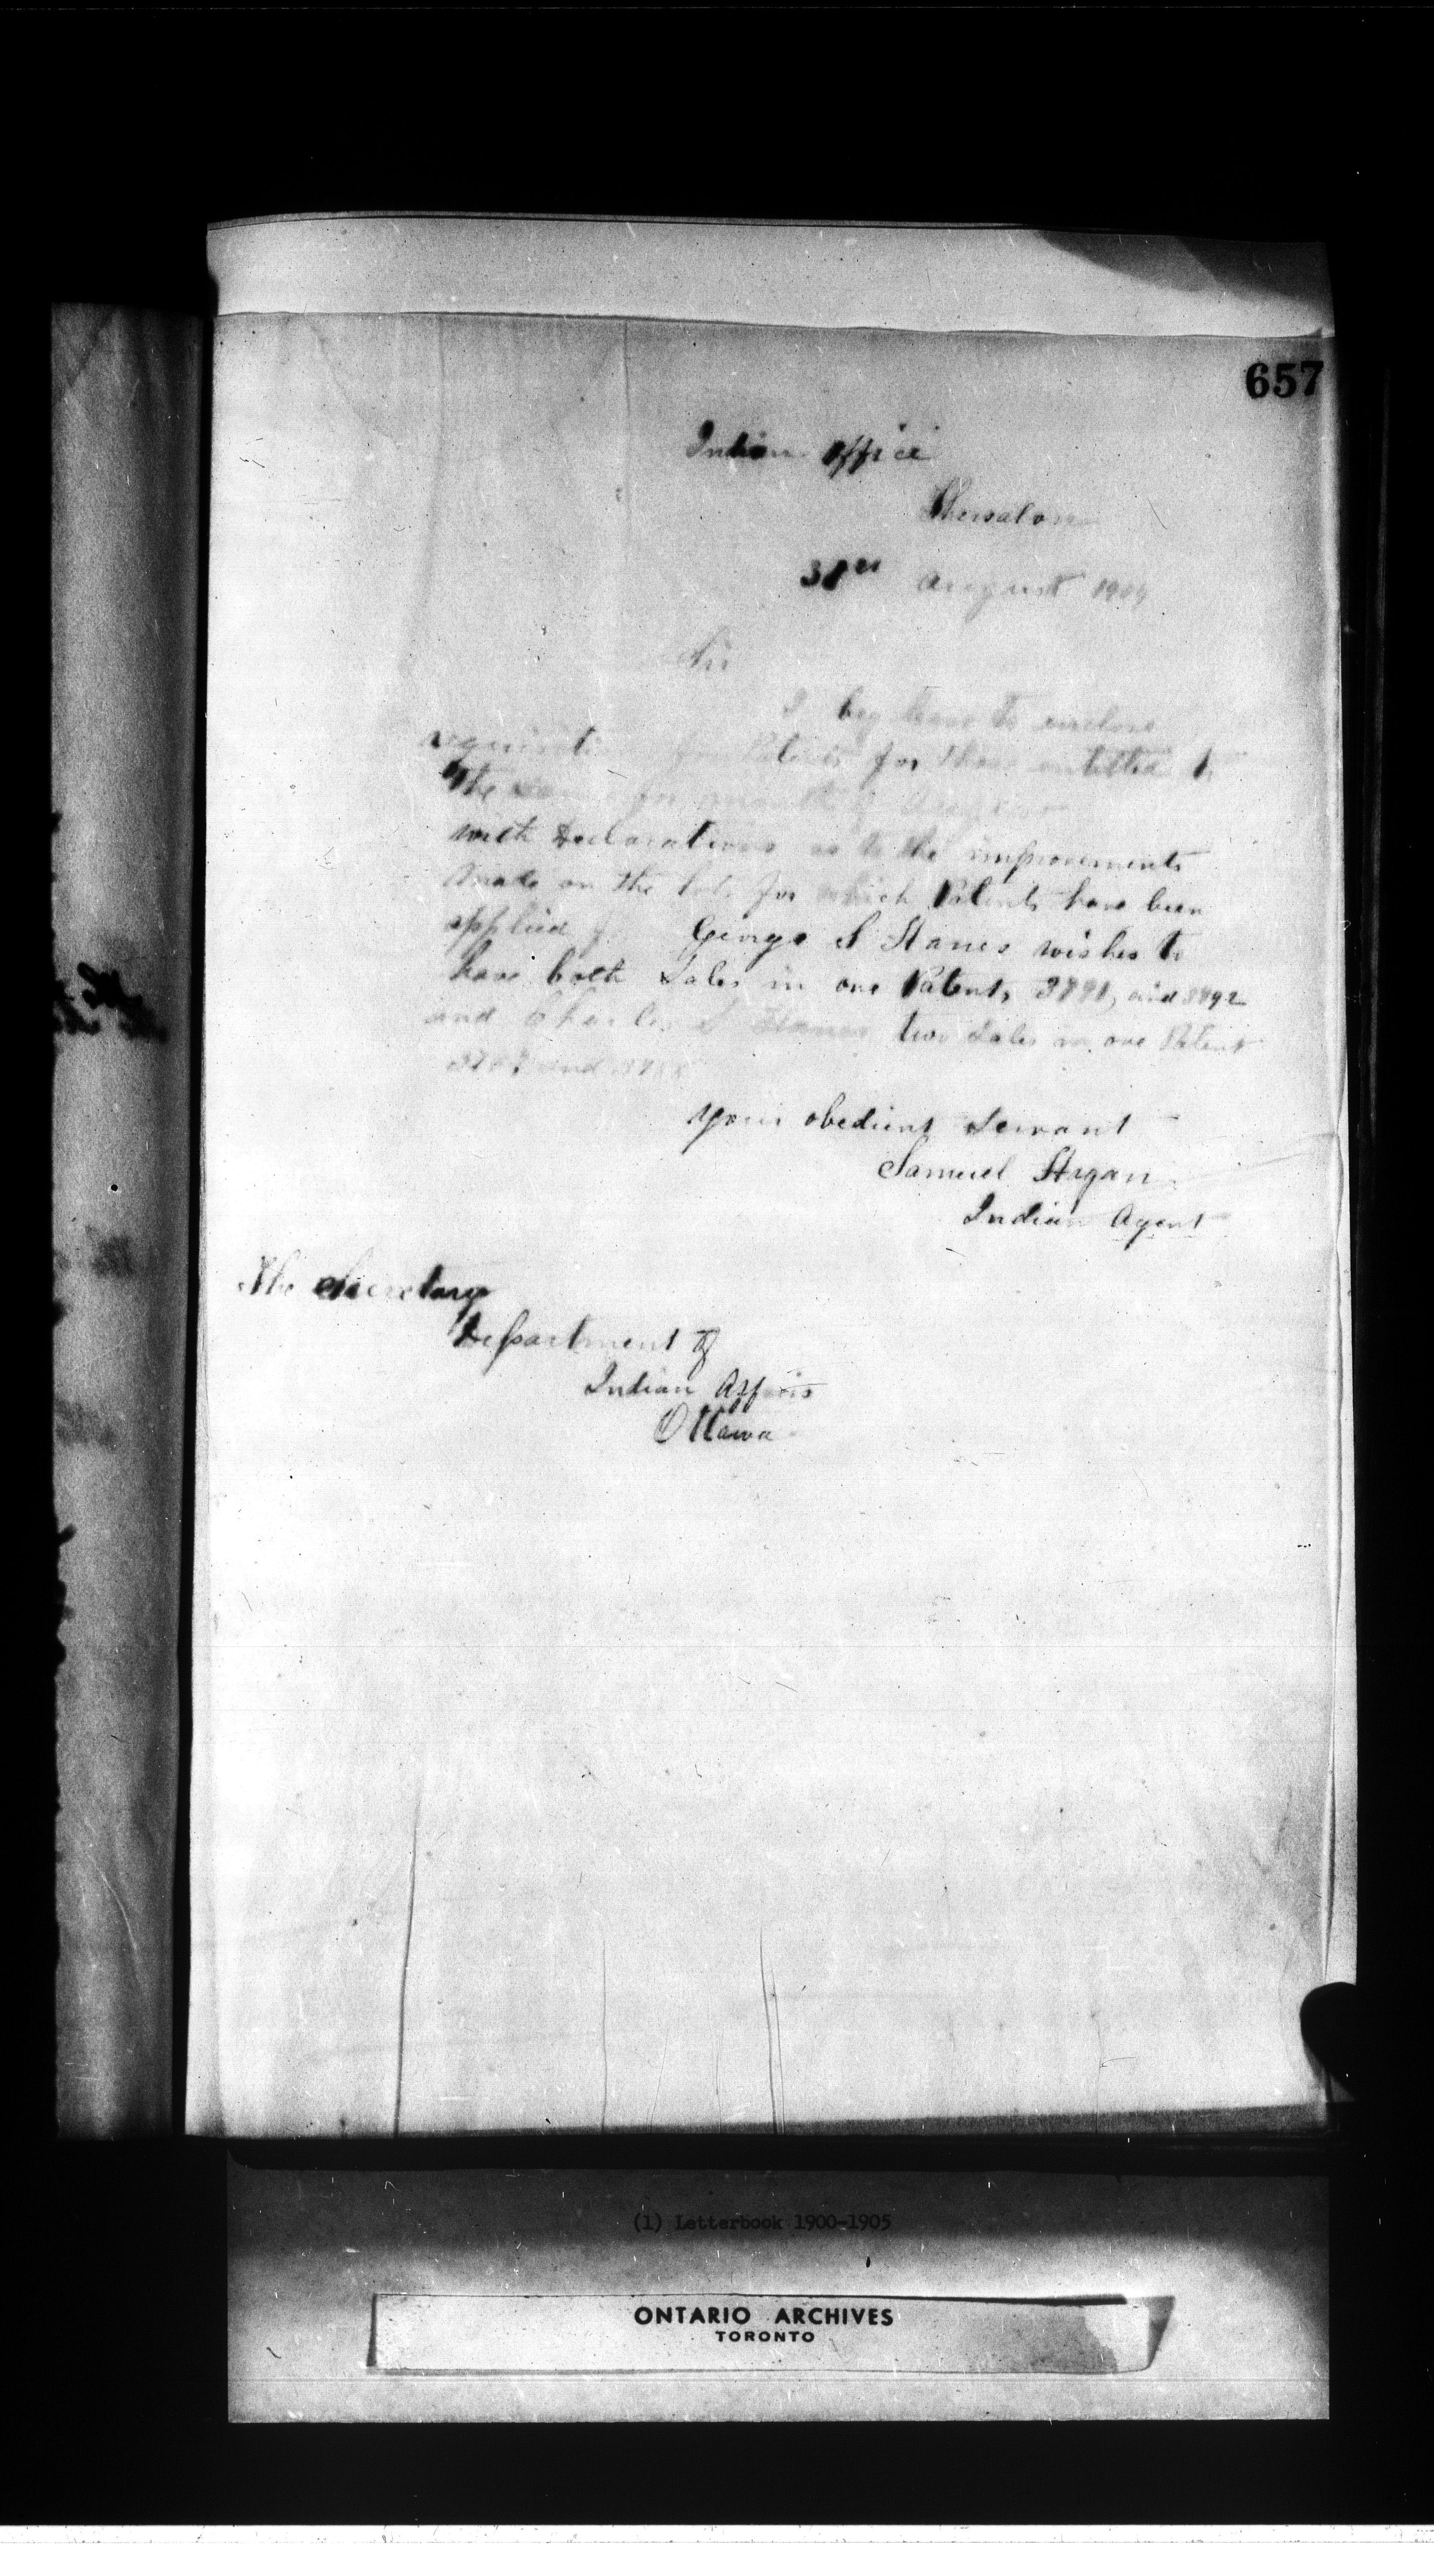 657
Indian Office
Thessalon
31st August 1904
Sir
I beg leave to enclose
requisition for Patents for those entitled to
the same for month of August
with Declarations as to the improvements
made on the lots for which Patents have been
applied George S Stanes wishes to
have both Sales in one Patent, 3891, and 3892
and Charles S Stanes two Sales in one Patent
and
your obedient servant
Samuel Hagan
Indian Agent
The Secretary
Department of
Indian Affairs
Ottawa
(1) Letterbook 1900-1905
ONTARIO ARCHIVES
TORONTO